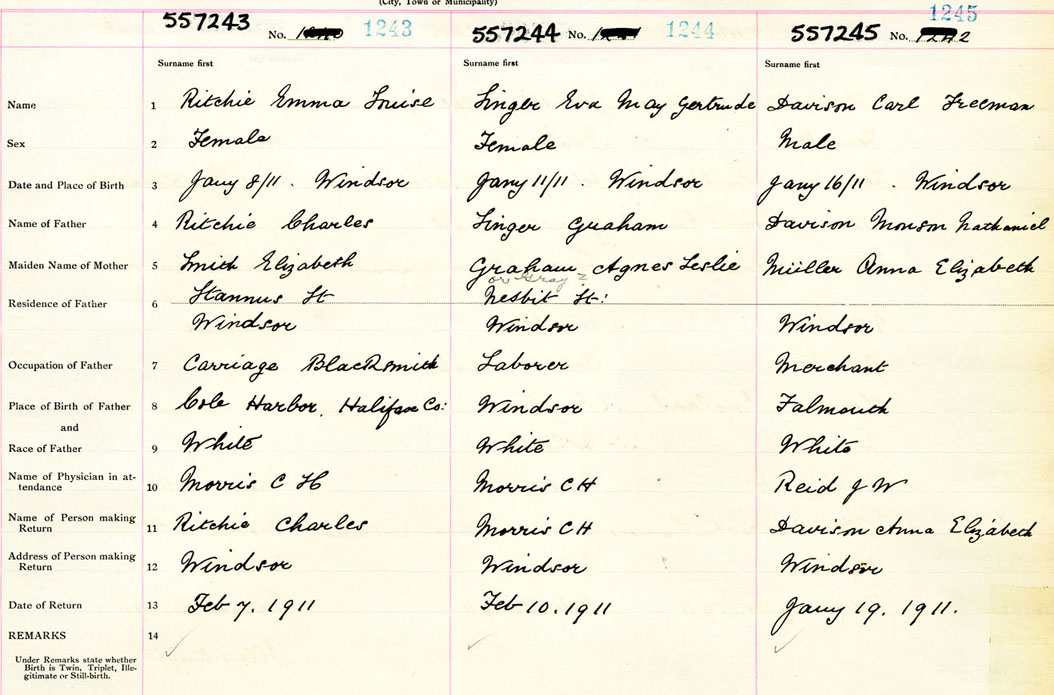 (City, Town or Municipality)
557243 No. 1243 557244 No. 1244 557245 No. 1242 1245
Surname first Surname first Surname first
Name 1 Ritchie Emma Louise Singer Eva May Gertrude Davison Carl Freeman
Sex 2 Female Female Male
Date and Place of Birth 3 Jany 8/11 . Windsor Jany 11/11 . Windsor Jany 16/11 . Windsor
Name of Father 4 Ritchie Charles Singer Graham Davison Monson Nathaniel
Maiden Name of Mother 5 Smith Elizabeth Graham Agnes Leslie Müller Anna Elizabeth
or Gray?
Residence of Father 6 Stannus St Nesbit St:
Windsor Windsor Windsor
Occupation of Father 7 Carriage Blacksmith Laborer Merchant
Place of Birth of Father 8 Cole Harbor, Halifax Co: Windsor Falmouth
and
Race of Father 9 White White White
Name of Physician in at-
tendance 10 Morris C H Morris C H Reid J W
Name of Person making
Return 11 Ritchie Charles Morris C H Davison Anna Elizabeth
Address of Person making
Return 12 Windsor Windsor Windsor
Date of Return 13 Feb 7. 1911 Feb 10. 1911 Jany 19. 1911.
REMARKS 14
Under Remarks state whether
Birth is Twin, Triplet, Ille-
gitimate or Still-birth.